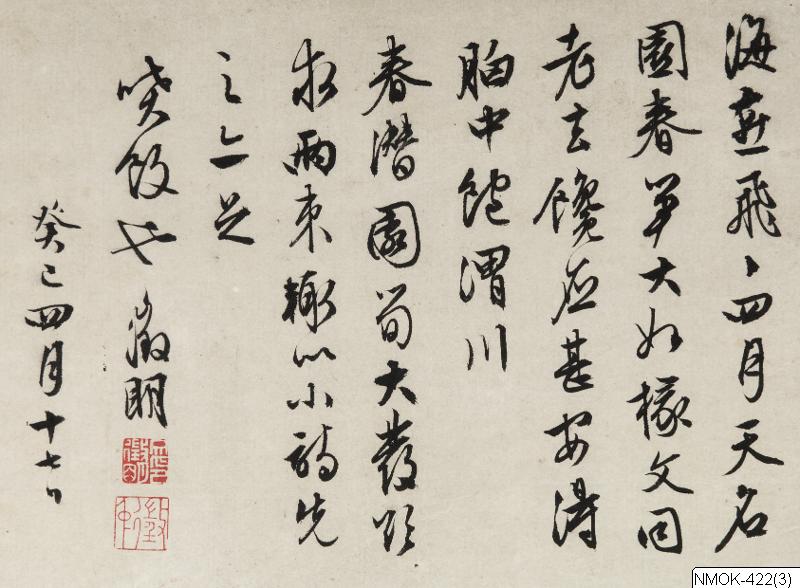 海燕飛〻四月天名
園春筍大如椽文同
老去饞應甚安得
胸中飽渭川
春潛園筍大發欲
求兩束輒以小詩先
之亦足
噴飯也 徵明
癸巳四月十七日
NMOK-422(3)